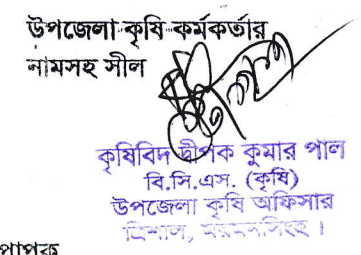 উপজেলা কৃষি কর্মকর্তার
নামসহ সীল
কৃষিবিদ দীপক কুমার পাল
বি.সি.এস. (কৃষি)
উপজেলা কৃষি অফিসার
ত্রিশাল, ময়মনসিংহ।